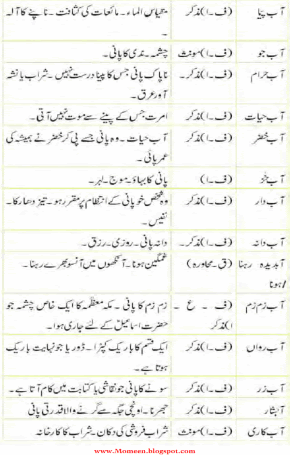 آب پیا (ف۔ا) مذکر مقیاس الماء۔ مائعات کی کثافت۔ ناپنے کا آلہ
۔
آب جو (ف۔ا) مونث چشمہ۔ ندی کا پانی۔
آب حرام (ف۔ا) مذکر ناپاک پانی جس کا پینا درست نہیں۔ شراب یا نشہ
آور عرق۔
آب حیات (ف۔ا) مذکر امرت جس کے پینے سے موت نہیں آتی۔
آب خضر (ف۔ا) مذکر آب حیات۔ وہ پانی جسے پی کر خضر نے ہمیشہ کی
عمر پائی۔
آب خیز (ف۔ا) پانی کا بہاؤ۔ موج۔ لہر۔
آب دار (ف۔ا) مذکر وہ شخص جو پانی کے انتظام پر مقرر ہو۔ تیز دھار کا۔
نفیس۔
آب دانہ (ف۔ا) مذکر۔ دانہ پانی۔ روزی۔ رزق۔
آبدیدہ رہنا (ق۔ محاورہ) غمگین ہونا۔ آنکھوں میں آنسو بھرے رہنا۔
/ہونا
آب زم زم (ف۔ ع۔ زم زم کا پانی۔ مکہ معظمہ کا ایک خاص چشمہ جو
ا) مذکر حضرت اسماعیل کے لئے جاری ہوا۔
آب رواں (ف۔ا) مذکر ایک قسم کا باریک کپڑا۔ ڈوریا جو نہایت باریک
ہوتا ہے۔
آب زر (ف۔ا) مذکر سونے کا پانی جو نقاشی یا کتابت میں کام آتا ہے۔
آبشار (ف۔ا) مذکر جھرنا۔ اونچی جگہ سے گرنے والا قدرتی پانی
آب کاری (ف۔ا) مونث شراب فروشی کی دکان۔ شراب کا کارخانہ
www.Momeen.blogspot.com